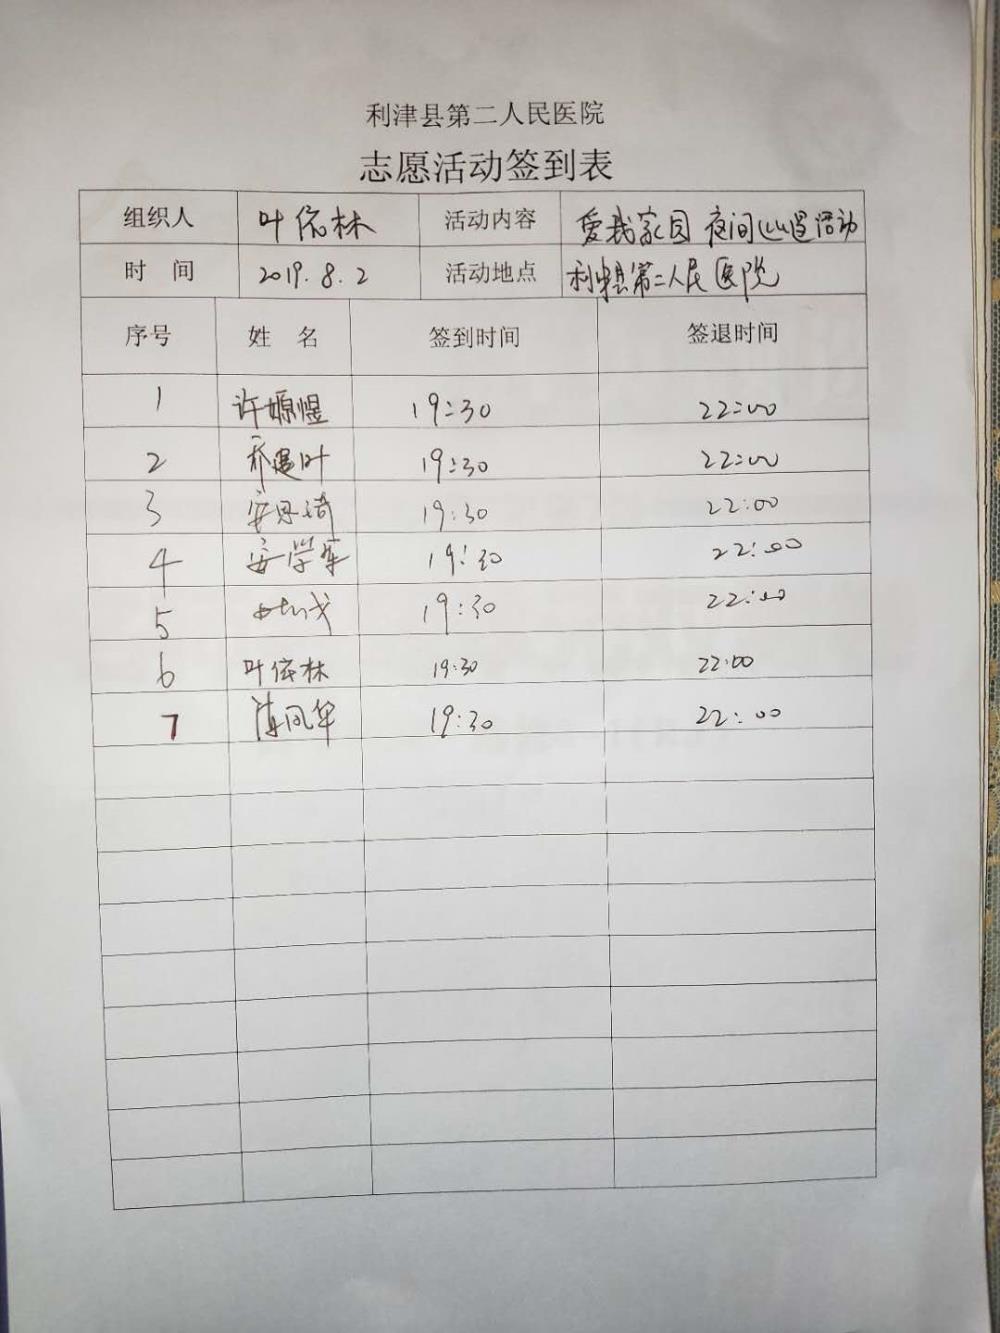 利津县第二人民医院
志愿活动签到表
组织人 叶依林 活动内容 爱我家园 夜间巡逻活动
时 间 2019.8.2 活动地点 利津县第二人民医院
序号 姓 名 签到时间 签退时间
1 许嫄煜 19:30 22:00
2 19:30 22:00
3 安思琦 19:30 22:00
4 安学军 19:30 22:00
5 19:30 22:00
6 叶依林 19:30 22:00
7 凤华 19:30 22:00